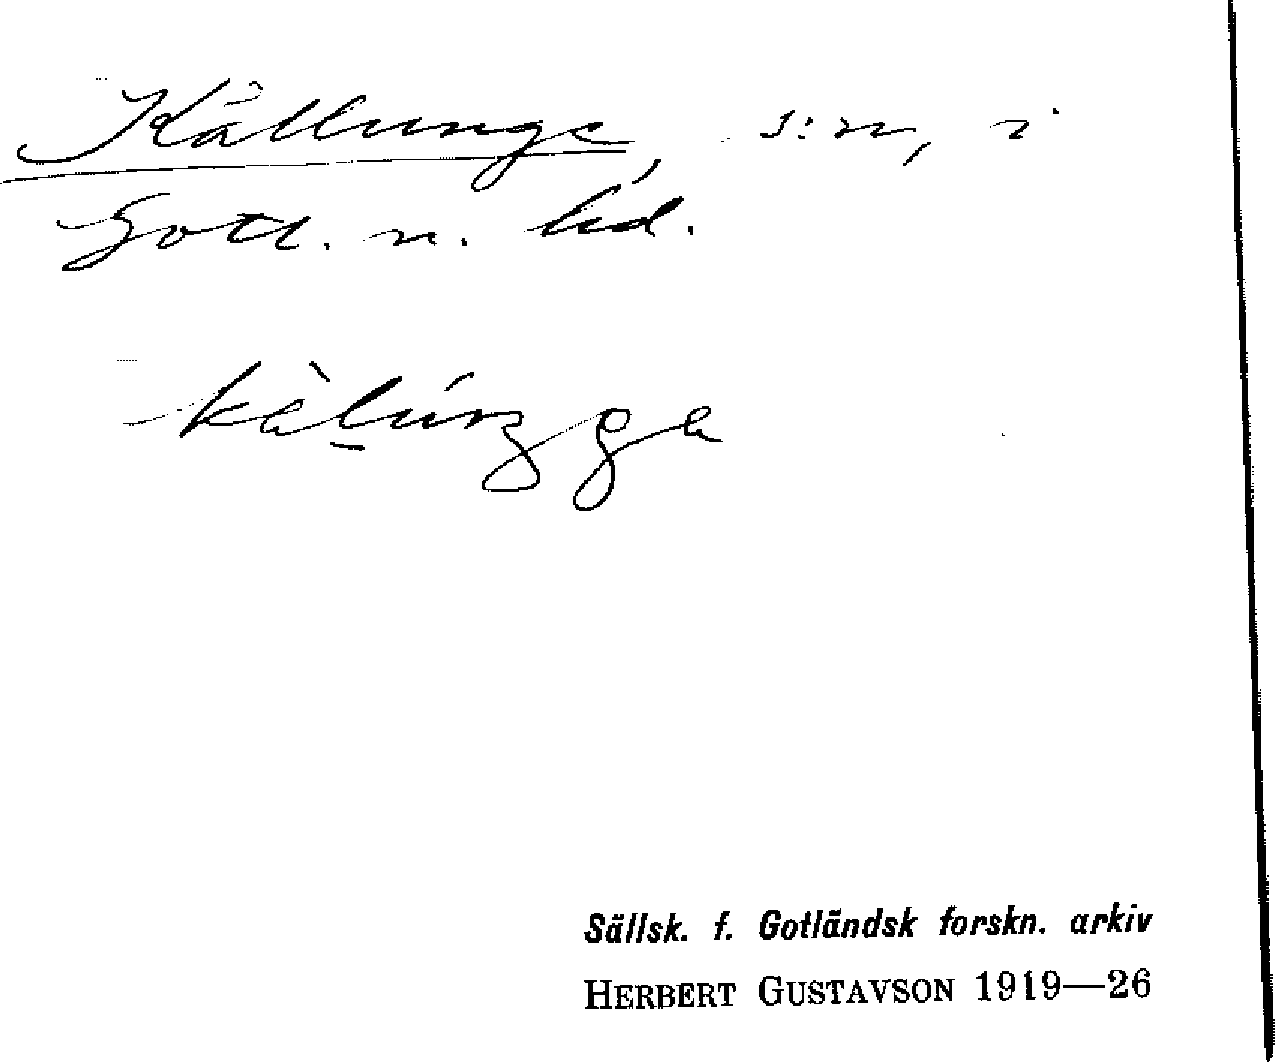 Källunge, s:n, i
Gotl. n. hd.
kälúngge
Sällsk. f. Gotländsk forskn. arkiv
HERBERT GUSTAVSON 1919—26